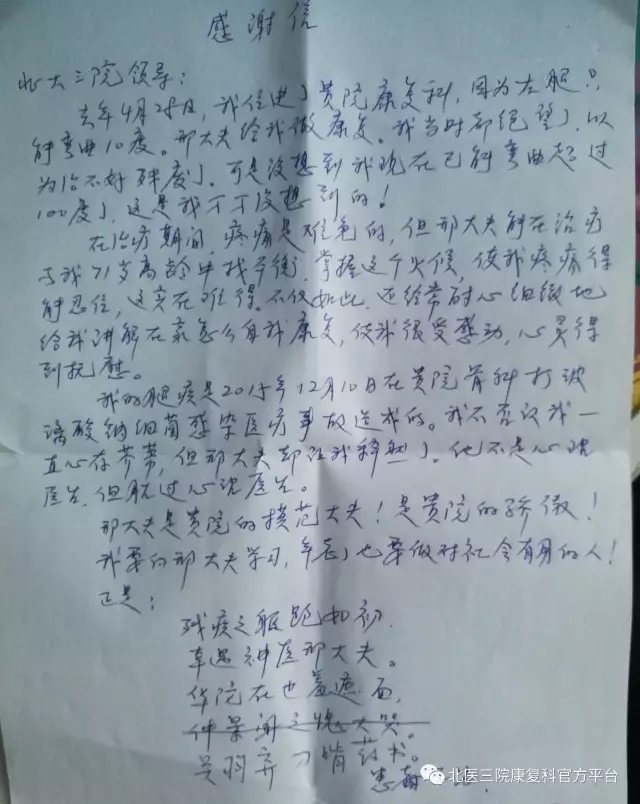 感谢信
北大三院领导：
去年4月28日，我住进了贵院康复科，因为左腿只
能弯曲10度。邢大夫给我做康复。我当时都绝望了，以
为治不好残废了。可是没想到我现在已能弯曲超过
100度了，这是我万万没想到的！
在治疗期间，疼痛是难免的，但邢大夫能在治疗
与我71岁高龄中找平衡，掌握这个火候，使我疼痛得
能忍住，这实在难得。不仅如此，还经常耐心细微地
给我讲解在家怎么自我康复，使我很受感动，心灵得
到抚慰。
我的腿疾是2015年12月10日在贵院骨科打玻
璃酸钠细菌感染医疗事故造成的。我不否认我一
直心存芥蒂，但邢大夫却让我释然了。他不是心理
医生，但胜过心理医生。
邢大夫是贵院的模范大夫！是贵院的骄傲！
我要向邢大夫学习，年老了也要做对社会有用的人！
正是：
残疾之躯跑如初，
幸遇神医邢大夫。
华陀在也羞遮面，
仲景闻之愧大哭。
关羽弃刀啃药书。
患者
北医三院康复科官方平台